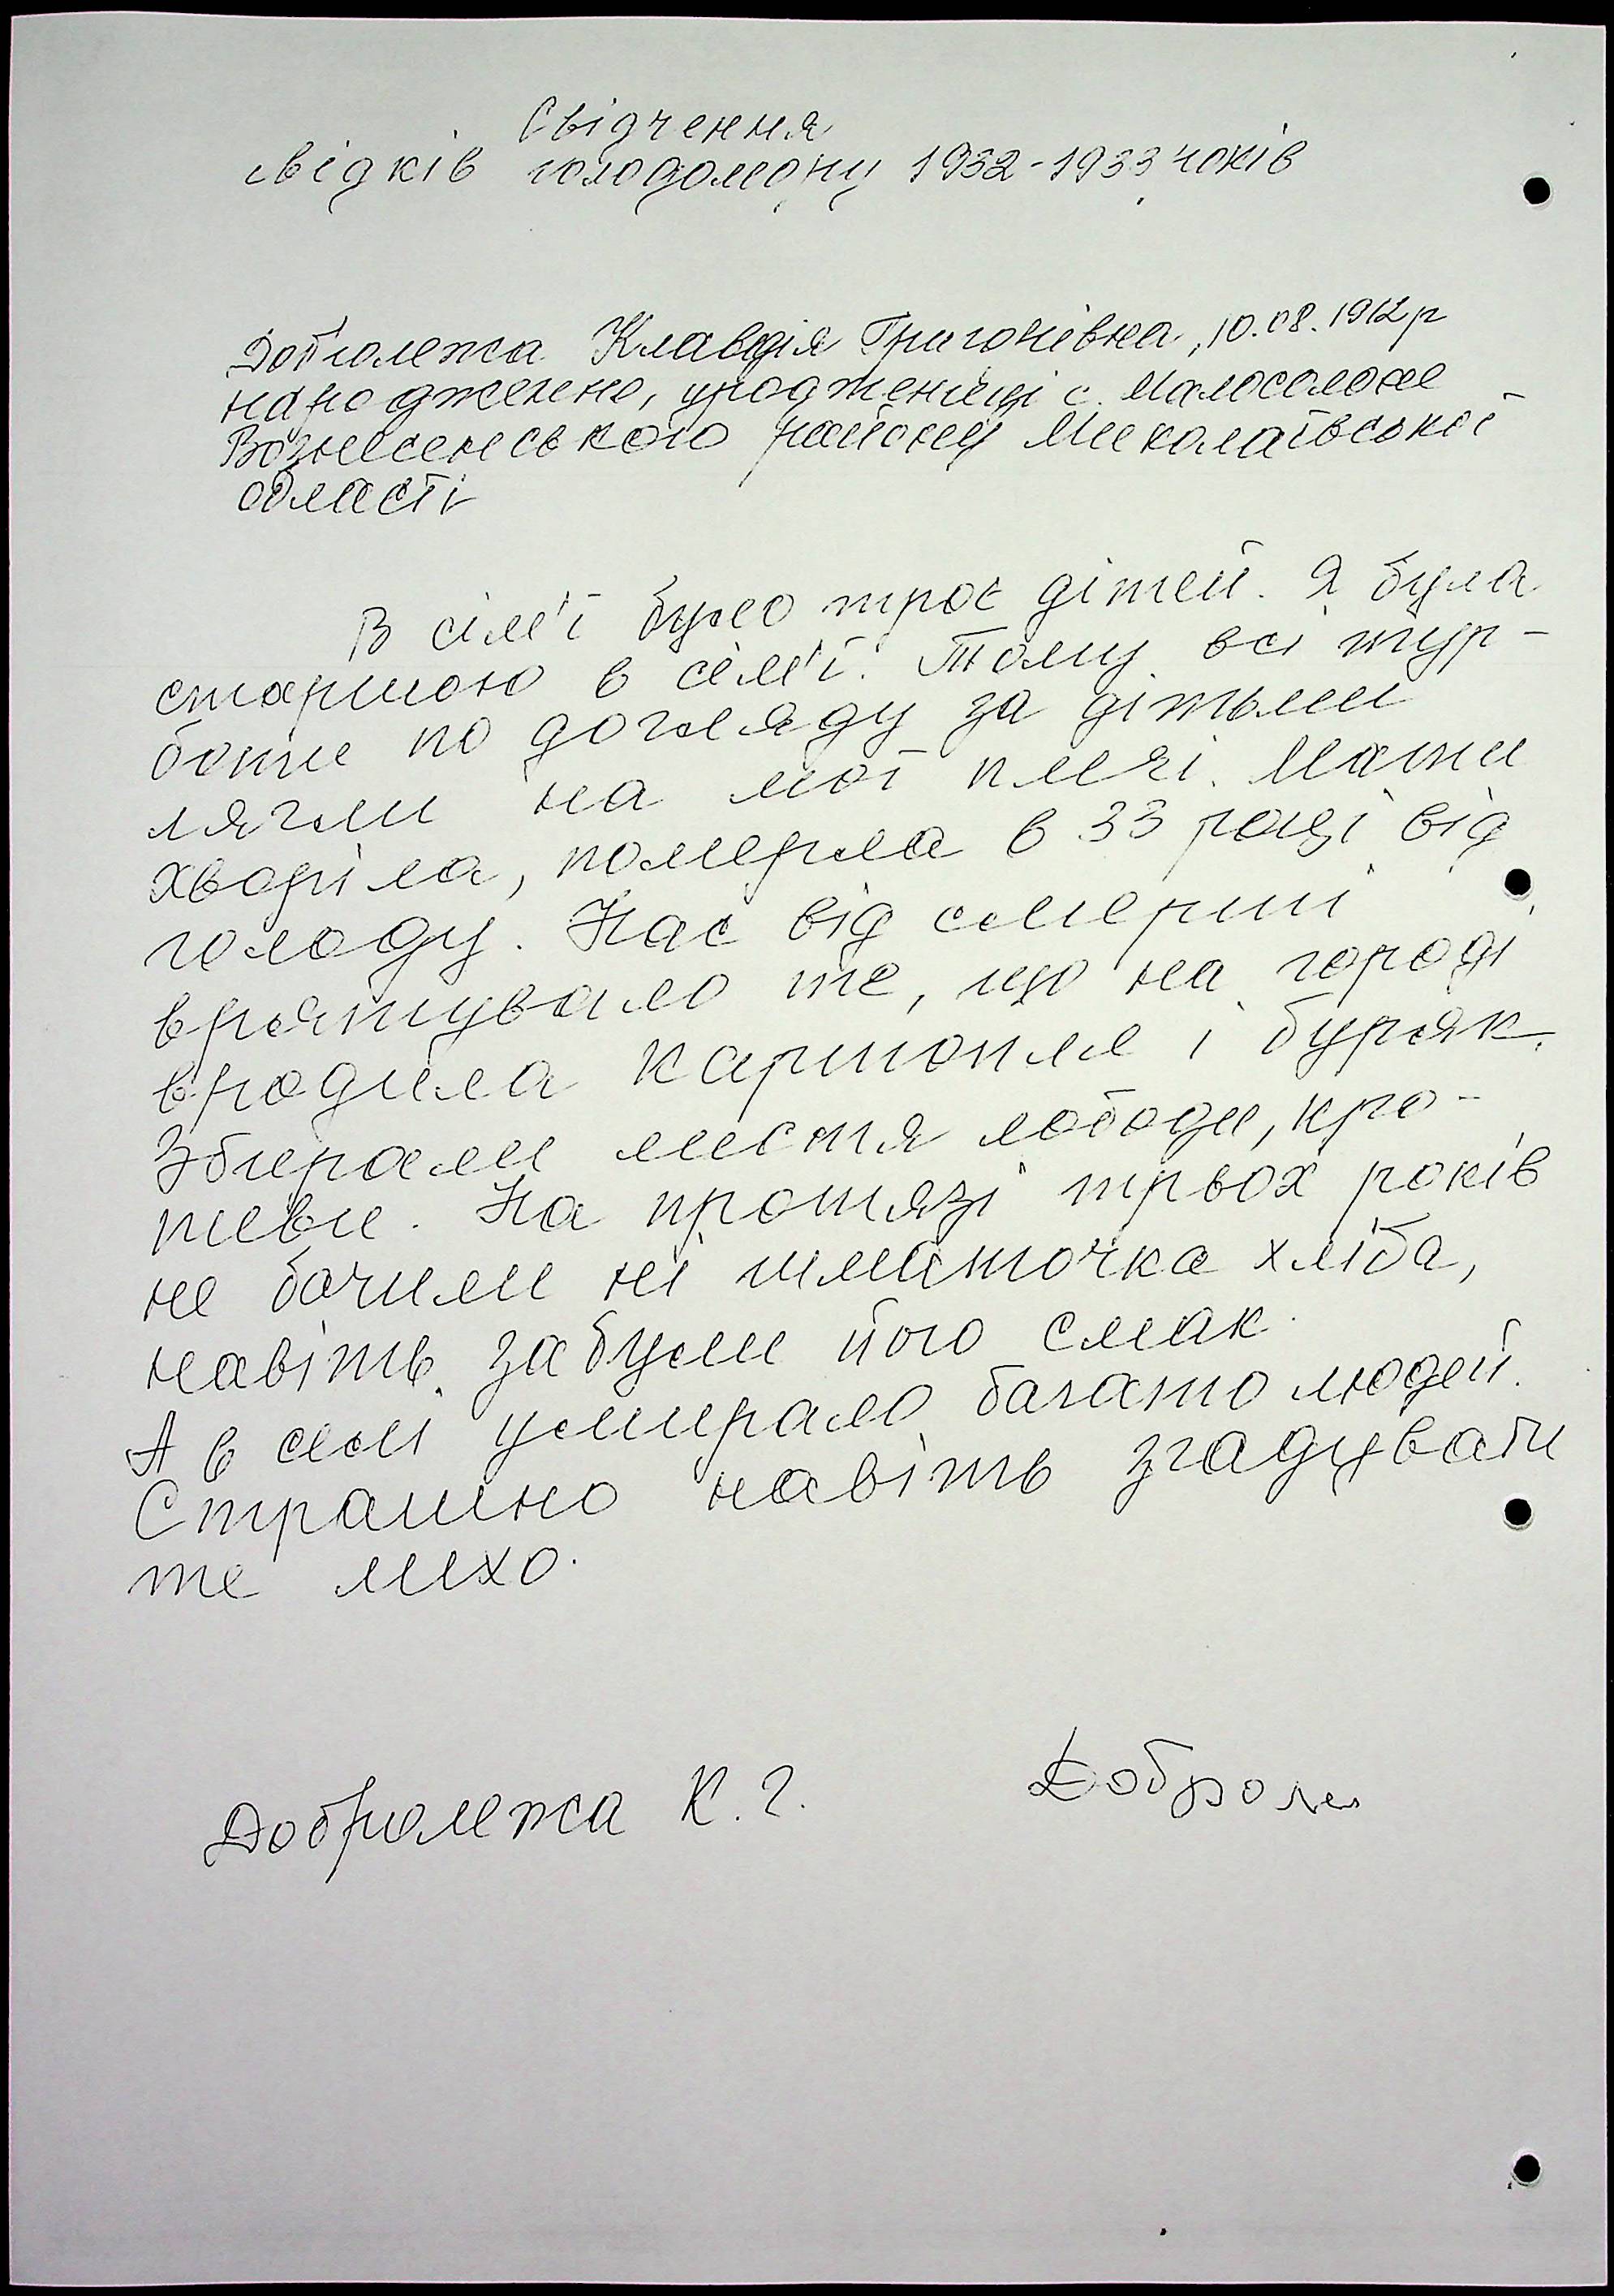 Свідчення
свідків голодомору 1932-1933 років
Добролежа Клавдія Григорівна, 10.08.1912 р
народження, уродженіці с. Малосолоне
Вознесенського району Миколаївської
області
В сім'ї було троє дітей. Я була
старшою в сім'ї. Тому всі тур-
боти по догляду за дітьми
лягли на мої плечі. Мати
хворіла, померла в 33 році від
голоду. Нас від смерті
врятувало те, що на городі
вродила картопля і буряк.
Збирали листя лободи, кро-
пиви. На протязі трьох років
не бачили ні шматочка хліба,
навіть забули його смак.
А в селі умирало багато людей.
Страшно навіть згадувати
те лихо.
Добролежа К. Г.
Доброле